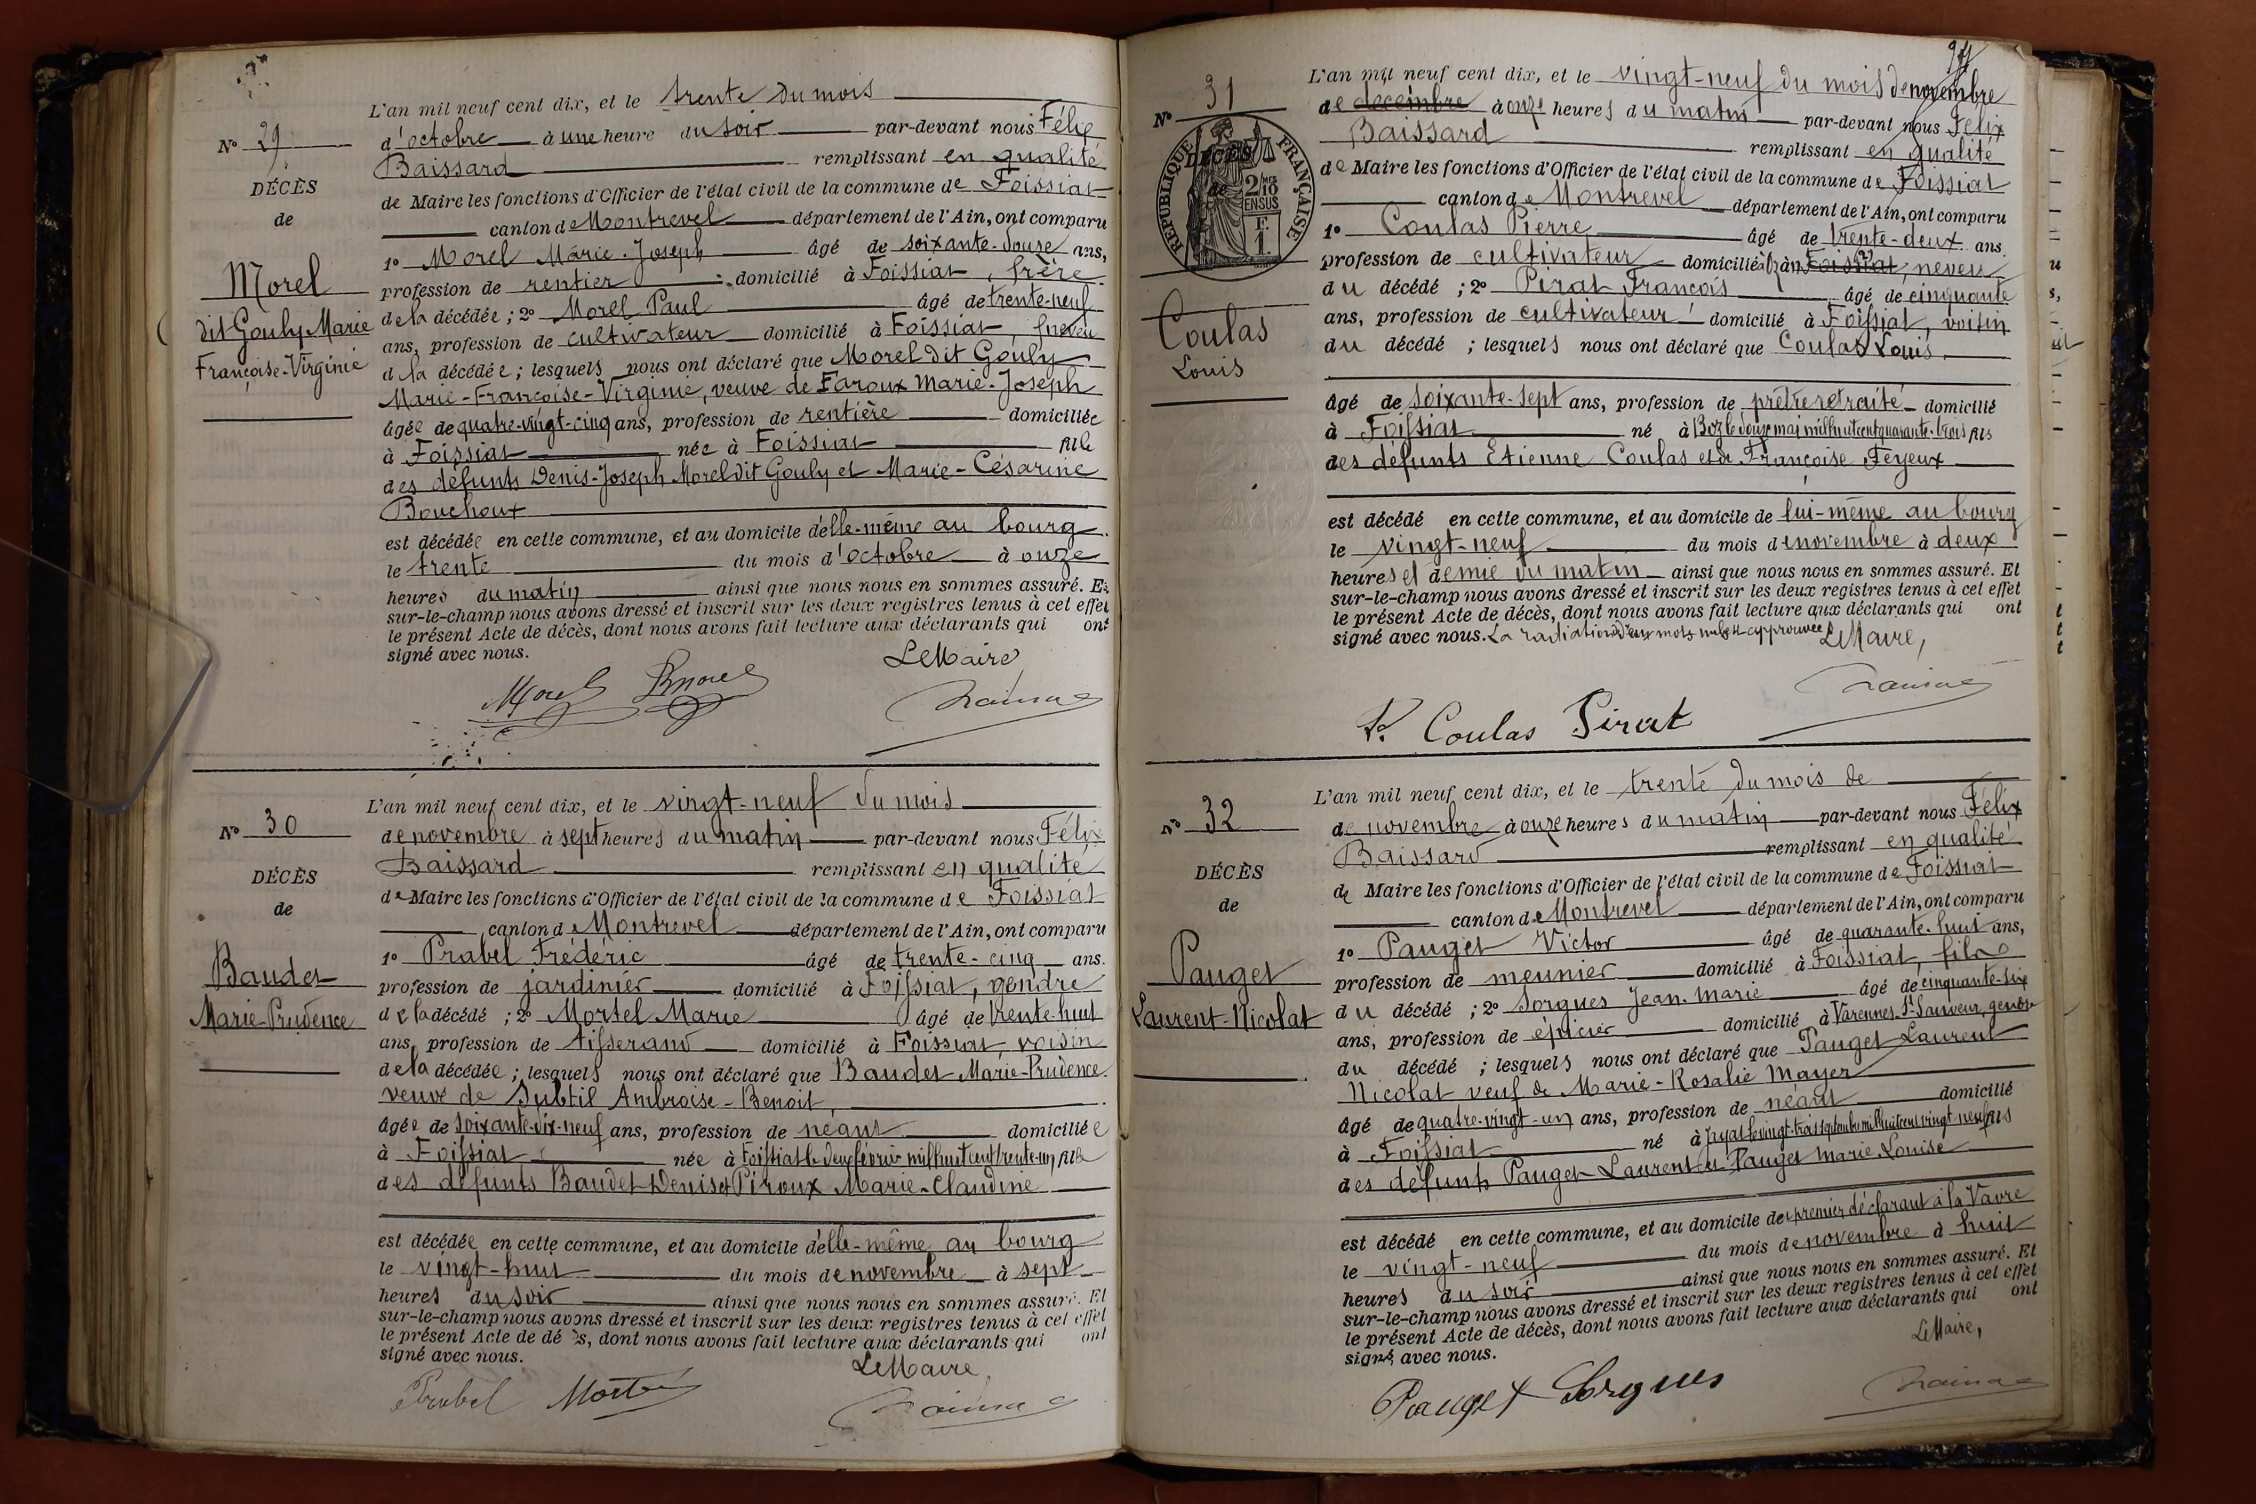 N° 29
DÉCÈS
de
Morel
dit Gouly Marie
Françoise-Virginie
L'an mil neuf cent dix, et le trente du mois
d'octobre à une heure du soir par-devant nous Félix
Baissard remplissant en qualité
de Maire les fonctions d'Officier de l'état civil de la commune de Foissiat
canton de Montrevel département de l'Ain, ont comparu
1° Morel Marie-Joseph âgé de soixante-douze ans,
profession de rentier domicilié à Foissiat, frère
de la décédée; 2° Morel Paul âgé de trente-neuf
ans, profession de cultivateur domicilié à Foissiat, neveu
de la décédée; lesquels nous ont déclaré que Morel dit Gouly
Marie-Françoise-Virginie, veuve de Faroux Marie-Joseph
âgée de quatre-vingt-cinq ans, profession de rentière domiciliée
à Foissiat née à Foissiat fille
des défunts Denis-Joseph Morel dit Gouly et Marie-Césarine
Bouchoux
est décédée en cette commune, et au domicile d'elle-même au bourg
le trente du mois d'octobre à onze
heures du matin ainsi que nous nous en sommes assuré. Et
sur-le-champ nous avons dressé et inscrit sur les deux registres tenus à cet effet
le présent Acte de décès, dont nous avons fait lecture aux déclarants qui ont
signé avec nous.
Le Maire
Morel PMorel
N° 30
DÉCÈS
de
Baudet
Marie-Prudence
L'an mil neuf cent dix, et le vingt-neuf du mois
de novembre à sept heures du matin par-devant nous Félix
Baissard remplissant en qualité
de Maire les fonctions d'Officier de l'état civil de la commune de Foissiat
canton de Montrevel département de l'Ain, ont comparu
1° Prabel Frédéric âgé de trente-cinq ans.
profession de jardinier domicilié à Foissiat, gendre
de la décédé; 2° Mortel Marie âgé de trente-huit
ans, profession de tisserand domicilié à Foissiat, voisin
de la décédée; lesquels nous ont déclaré que Baudet Marie-Prudence
veuve de Subtil Ambroise-Benoit,
âgée de soixante-dix-neuf ans, profession de néant domiciliée
à Foissiat née à Foissiat le deux février mil huit cent trente-un fille
des défunts Baudet Denis et Piroux Marie-Claudine
est décédée en cette commune, et au domicile d'elle-même au bourg
le vingt-huit du mois de novembre à sept
heures du soir ainsi que nous nous en sommes assuré. Et
sur-le-champ nous avons dressé et inscrit sur les deux registres tenus à cet effet
le présent Acte de dé s, dont nous avons fait lecture aux déclarants qui ont
signé avec nous.
Le Maire,
Prabel Mortel
N° 31
RÉPUBLIQUE FRANÇAISE
DÉCÈS
de
2/10
EN SUS
F.
1.
Coulas
Louis
L'an mil neuf cent dix, et le vingt-neuf du mois de novembre
de decembre à onze heures du matin par-devant nous Félix
Baissard remplissant en qualité
de Maire les fonctions d'Officier de l'état civil de la commune de Foissiat
canton de Montrevel département de l'Ain, ont comparu
1° Coulas Pierre âgé de trente-deux ans
profession de cultivateur domicilié à Foissiat, neveu
du décédé; 2° Pirat François âgé de cinquante
ans, profession de cultivateur domicilié à Foissiat, voisin
du décédé; lesquels nous ont déclaré que Coulas Louis
âgé de soixante-sept ans, profession de prêtre retraité domicilié
à Foissiat né à Boz le douze mai mil huit cent quarante-trois fils
des défunts Etienne Coulas et de Françoise Feyeux
est décédé en cette commune, et au domicile de lui-même au bourg
le vingt-neuf du mois de novembre à deux
heures et demie du matin ainsi que nous nous en sommes assuré. Et
sur-le-champ nous avons dressé et inscrit sur les deux registres tenus à cet effet
le présent Acte de décès, dont nous avons fait lecture aux déclarants qui ont
signé avec nous. La radiation deux mots nuls et approuvée Le Maire,
P. Coulas Pirat
N° 32
DÉCÈS
de
Pauget
Laurent-Nicolat
L'an mil neuf cent dix, et le trente du mois de
de novembre à onze heures du matin par-devant nous Félix
Baissard remplissant en qualité
de Maire les fonctions d'Officier de l'état civil de la commune de Foissiat
canton de Montrevel département de l'Ain, ont comparu
1° Pauget Victor âgé de quarante-huit ans,
profession de meunier domicilié à Foissiat, fils
du décédé; 2° Sorgues Jean-Marie âgé de cinquante-six
ans, profession de épicier domicilié à Varennes-St Sauveur, gendre
du décédé; lesquels nous ont déclaré que Pauget Laurent
Nicolat veuf de Marie-Rosalie Mayer
âgé de quatre-vingt-un ans, profession de néant domicilié
à Foissiat né à Jayat le vingt-trois septembre mil huit cent vingt-neuf fils
des défunts Pauget Laurent et Pauget Marie Louise
est décédé en cette commune, et au domicile de premier déclarant à la Vavre
le vingt-neuf du mois de novembre à huit
heures du soir ainsi que nous nous en sommes assuré. Et
sur-le-champ nous avons dressé et inscrit sur les deux registres tenus à cet effet
le présent Acte de décès, dont nous avons fait lecture aux déclarants qui ont
signé avec nous.
Le Maire,
Pauget Sorgues